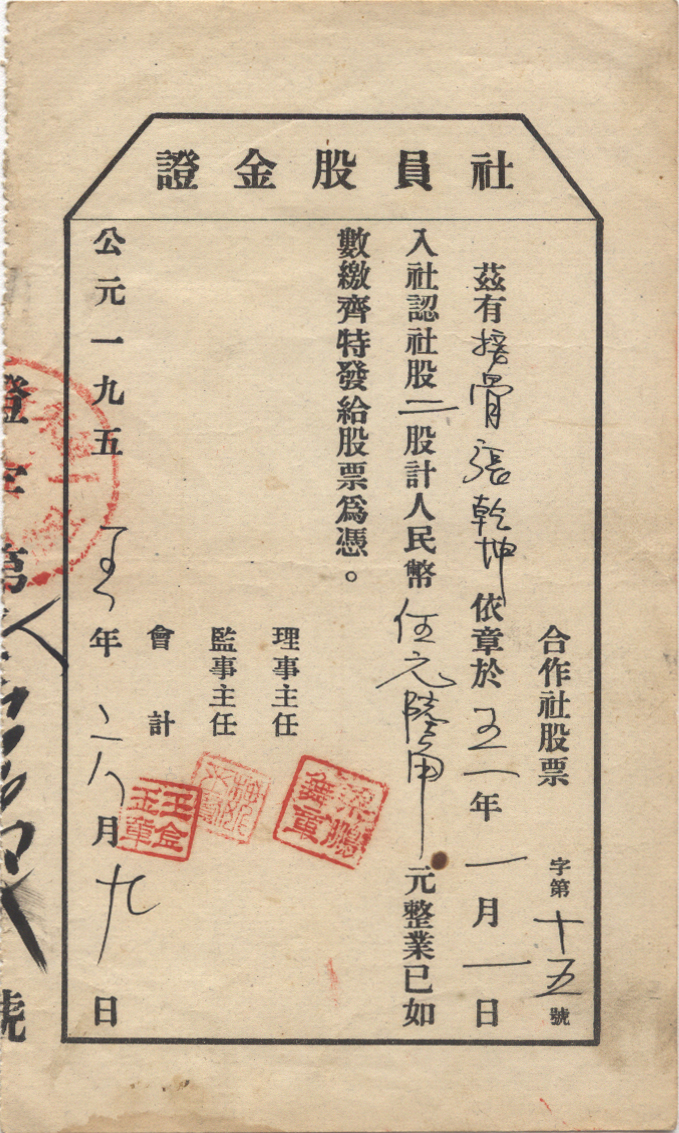 社員股金證
合作社股票 字第十五號
茲有 骨張乾坤依章於五一年一月一日
入社認社股二股計人民幣伍元陸角元整業已如
數繳齊特發給股票為憑。
理事主任
監事主任
會計
王金玉章
公元一九五 年 六月九日
證字第 號